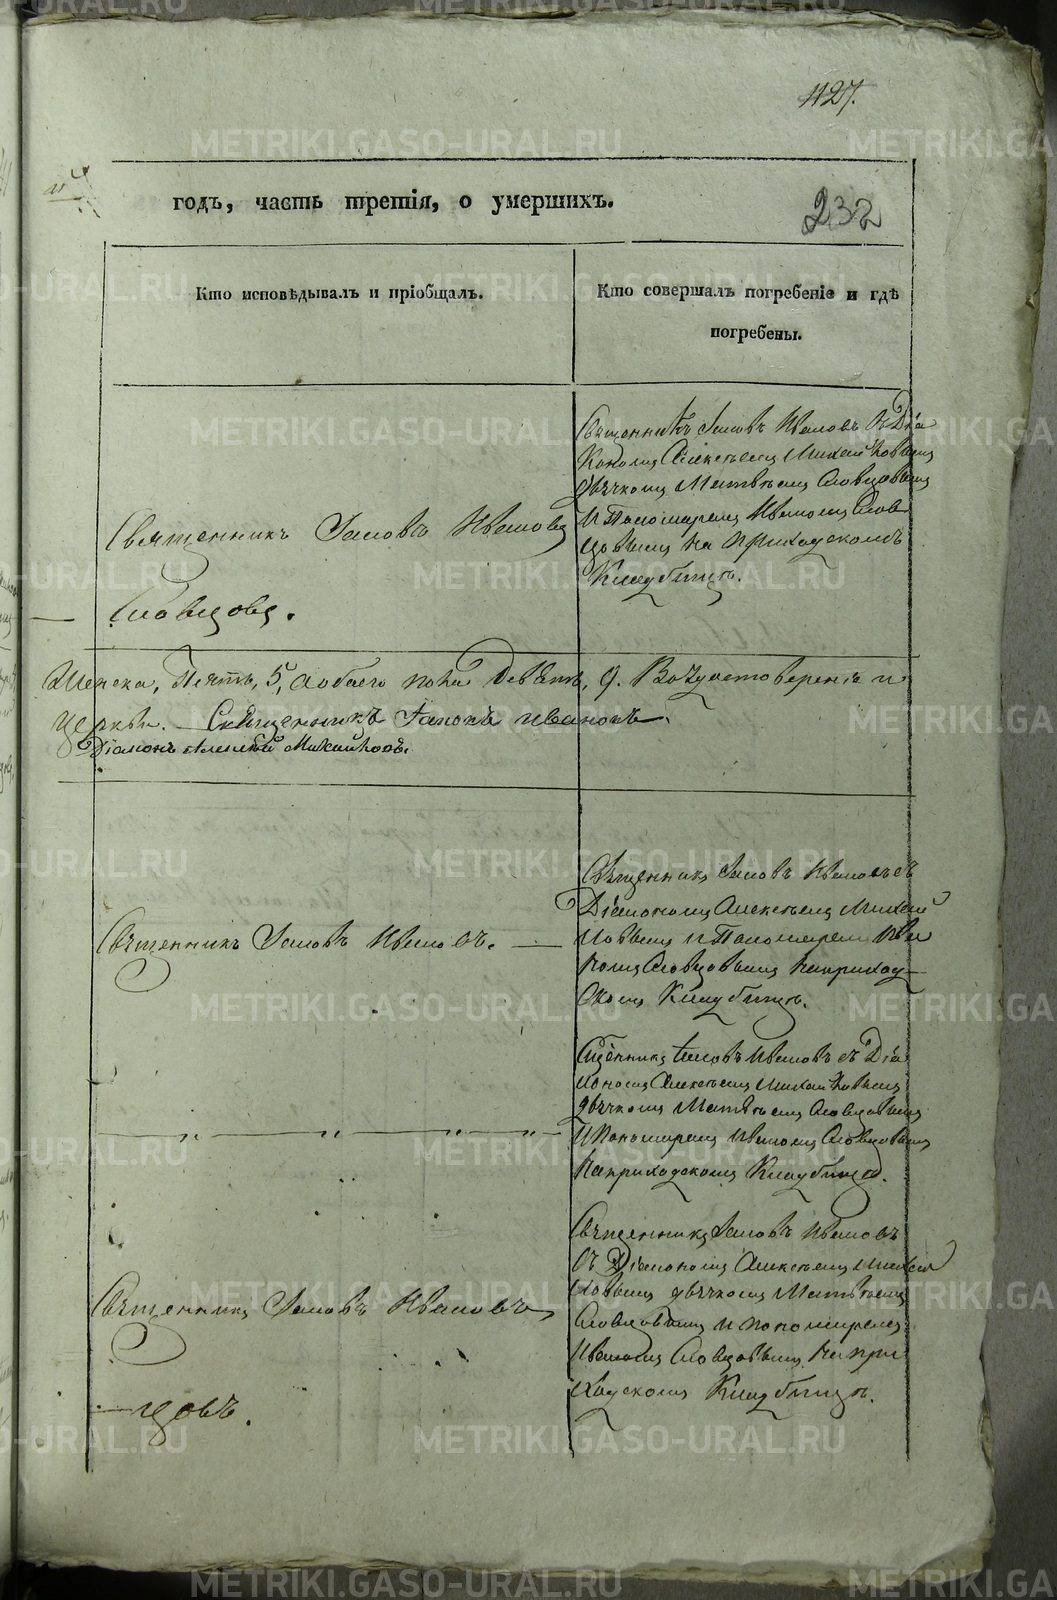 1127.
годъ, часть третія, о умершихъ.
232
Кто исповѣдывалъ и пріобщалъ.
Кто совершалъ погребеніе и гдѣ
погребены.
Священникъ Іаковъ Ивановъ съ Діа
кономъ Алексѣемъ Михайловымъ
дьячкомъ Матвѣемъ Словцовымъ
и Пономаремъ Иваномъ Слов
цовымъ на приходскомъ
Кладбищѣ.
Священникъ Іаковъ Ивановъ
Словцовъ.
Женска, Пять, 5, а обаего пола Девять, 9. В
церкви. Священникъ Іаковъ Ивановъ.
Діаконъ Алексѣй Михайловъ.
Священникъ Іаковъ Ивановъ.
Священникъ Іаковъ Ивановъ съ
Діакономъ Алексѣемъ Михай
ловымъ и Пономаремъ Ива
номъ Словцовымъ на приход
скомъ Кладбищѣ.
Іаковъ Ивановъ съ Діа
кономъ Алексѣемъ Михайловымъ
дьячкомъ Матвѣемъ Словцовымъ
и Пономаремъ Иваномъ Словцовымъ
на приходскомъ Кладбищѣ.
Священникъ Іаковъ Ивановъ
цовъ.
Священникъ Іаковъ Ивановъ
съ Діакономъ Алексѣемъ Михай
ловымъ дьячкомъ Матвѣемъ
Словцовымъ и пономаремъ
Иваномъ Словцовымъ на при
ходскомъ Кладбищѣ.
METRIKI.GASO-URAL.RU